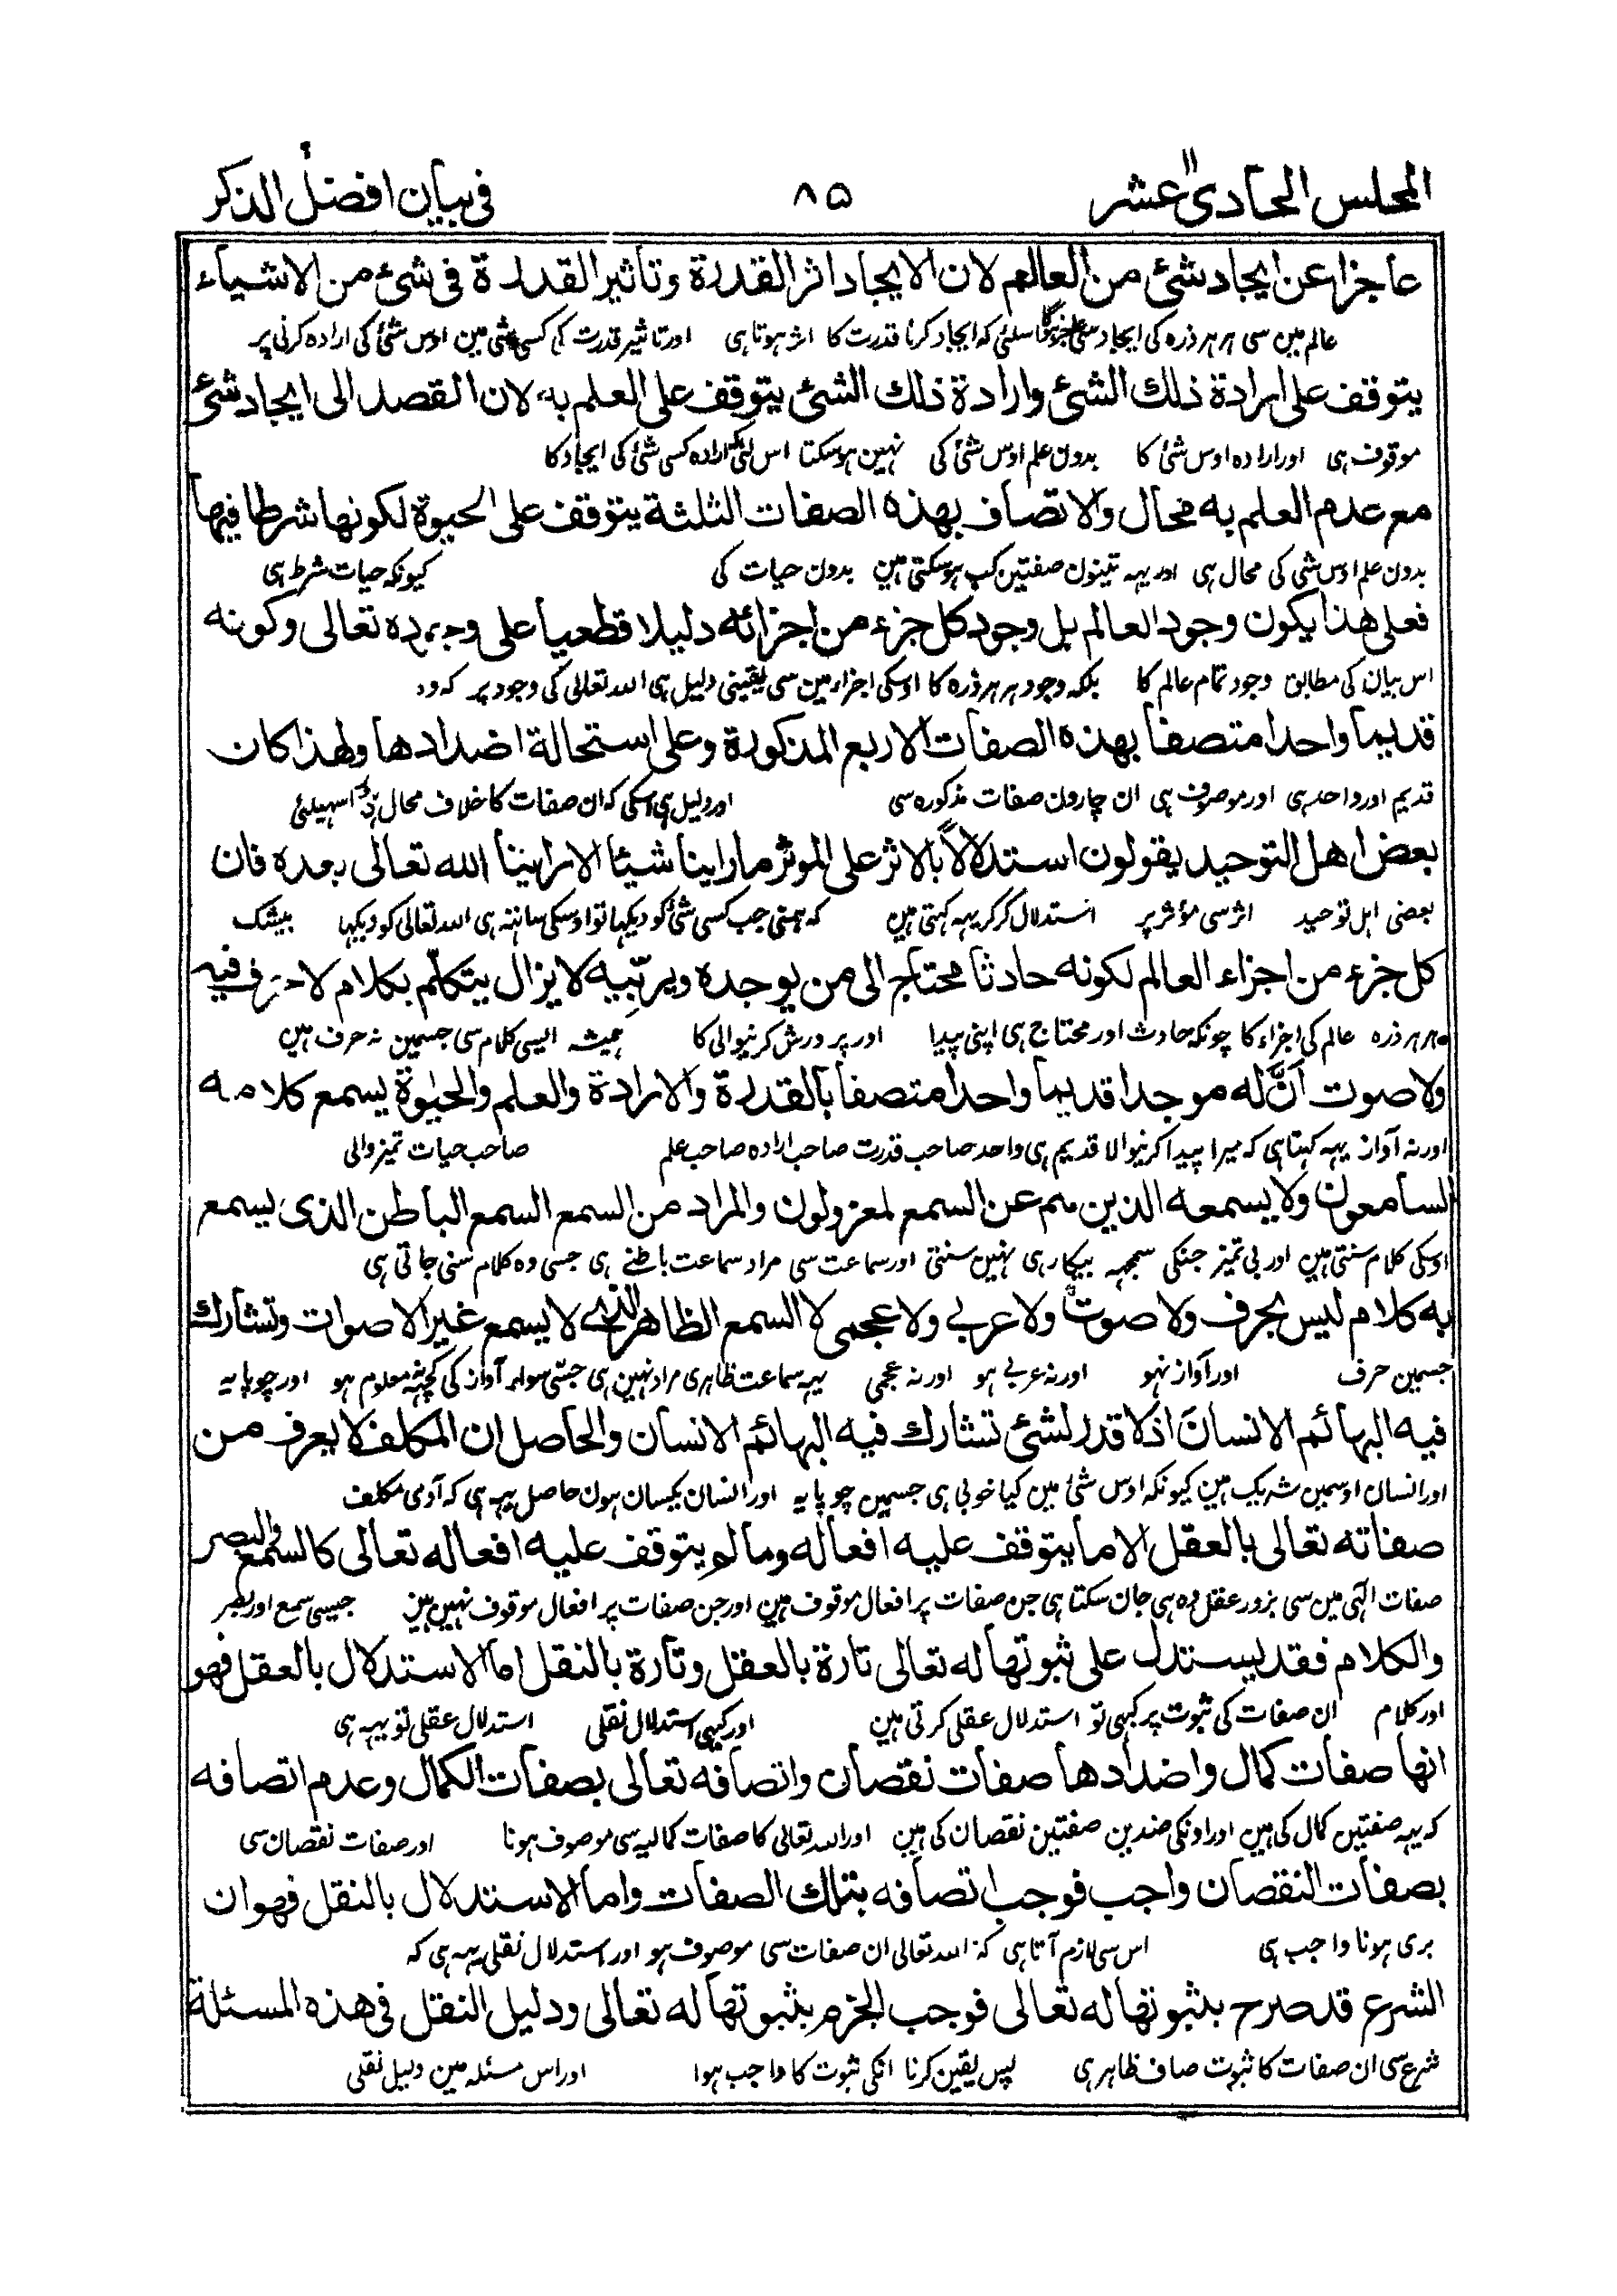 المجلس الحادي عشر ۸۵ في بيان افضل الذكر
عاجزا عن ايجاد شئ من العالم لان الايجاد اثر القدرة وتأثير القدرة فى شئ من الاشياء
عالم مین سی ہر ہر ذرہ کی ایجاد سی عاجز ہوگا اسلئی کہ ایجاد کرنا قدرت کا اثر ہوتا ہی اور تاثیر قدرت کی کسی شئی مین اوس شئ کی ارادہ کرنی پر
يتوقف على ارادة ذلك الشئ وارادة ذلك الشئ يتوقف على العلم به لان القصد الى ايجاد شئ
موقوف ہی اور ارادہ اوس شئ کا بدون علم اوس شئ کی نہین ہوسکتا اس لئی کہ ارادہ کسی شئ کی ایجاد کا
مع عدم العلم به محال والاتصاف بهذه الصفات الثلثة يتوقف على الحيوة لكونها شرطا فيها
بدون علم اوس شی کی محال ہی اور یہہ تینون صفتین کب ہوسکتی ہین بدون حیات کی کیونکہ حیات شرط ہی
فعلى هذا يكون وجود العالم بل وجود كل جزء من اجزائه دليلا قطعيا على وجوده تعالى وكونه
اس بیان کی مطابق وجود تمام عالم کا بلکہ وجود ہر ہر ذرہ کا اوسکی اجزاء مین سی یقینی دلیل ہی اللہ تعالی کی وجود پر کہ وہ
قديما واحدا متصفا بهذه الصفات الاربع المذكورة وعلى استحالة اضدادها ولهذا كان
قدیم اور واحد ہی اور موصوف ہی ان چارون صفات مذکورہ سی اور دلیل ہی اسکی کہ ان صفات کا خلاف محال ہی اسہیلئی
بعض اهل التوحيد يقولون استدلالا بالاثر على الموثر ماراينا شيئا الا راينا الله تعالى بعده فان
بعضی اہل توحید اثر سی مؤثر پر استدلال کرکر یہہ کہتی ہین کہ ہمنی جب کسی شئ کو دیکہا تو اوسکی ساتہہ ہی اللہ تعالی کو دیکہا بیشک
كل جزء من اجزاء العالم لكونه حادثا محتاج الى من يوجده ويربّيه لا يزال يتكلّم بكلام لا حرف فيه
ہر ہر ذرہ عالم کی اجزاء کا چونکہ حادث اور محتاج ہی اپنی پیدا اور پرورش کرنیوالی کا ہمیشہ ایسی کلام سی جسمین نہ حرف ہین
ولا صوت انّ له موجدا قديما واحدا متصفا بالقدرة والارادة والعلم والحيٰوة يسمع كلامه
اور نہ آواز یہہ کہتا ہی کہ میرا پیدا کرنیوالا قدیم ہی واحد صاحب قدرت صاحب ارادہ صاحب علم صاحب حیات تمیز والی
السامعون ولا يسمعه الذين هم عن السمع لمعزولون والمراد من السمع السمع الباطن الذى يسمع
اوسکی کلام سنتی ہین اور بی تمیز جنکی سمجہہ بیکار ہی نہین سنتی اور سماعت سی مراد سماعت باطنے ہی جسی وہ کلام سنی جاتی ہی
به كلام ليس بحرف ولا صوت ولا عربي ولا عجمى لا السمع الظاهر الذى لا يسمع غير الاصوات وتشارك
جسمین حرف اور آواز نہو اور نہ عربے ہو اور نہ عجمی یہہ سماعت ظاہری مراد نہین ہی جسی سواے آواز کی کچہہ نہ معلوم ہو اور چوپایہ
فيه البهائم الانسان اذ لا قدر لشئ تشارك فيه البهائم الانسان والحاصل ان المكلف لا يعرف من
اور انسان اوسمین شریک ہین کیونکہ اوس شئ مین کیا خوبی ہی جسمین چوپایہ اور انسان یکسان ہون حاصل یہہ ہی کہ آدمی مکلف
صفاته تعالى بالعقل الا ما يتوقف عليه افعاله وما لم يتوقف عليه افعاله تعالى كالسمع والبصر
صفات الہی مین سی بزور عقل وہ ہی جان سکتا ہی جن صفات پر افعال موقوف ہین اور جن صفات پر افعال موقوف نہین ہین جیسی سمع اور بصر
والكلام فقد يستدل على ثبوتها له تعالى تارة بالعقل وتارة بالنقل اما الاستدلال بالعقل فهو
اور کلام ان صفات کی ثبوت پر کبہی تو استدلال عقلی کرتی ہین اور کبہی استدلال نقلی استدلال عقلی تو یہہ ہی
انها صفات كمال واضدادها صفات نقصان واتصافه تعالى بصفات الكمال وعدم اتصافه
کہ یہہ صفتین کمال کی ہین اور اونکی ضدین صفتین نقصان کی ہین اور اللہ تعالی کا صفات کمالیہ سی موصوف ہونا اور صفات نقصان سی
بصفات النقصان واجب فوجب اتصافه بتلك الصفات واما الاستدلال بالنقل فهو ان
بری ہونا واجب ہی اس سی لازم آتا ہی کہ اللہ تعالی ان صفات سی موصوف ہو اور استدلال نقلی یہہ ہی کہ
الشرع قد صرح بثبوتها له تعالى فوجب الجزم بثبوتها له تعالى ودليل النقل فى هذه المسئلة
شرع سی ان صفات کا ثبوت صاف ظاہر ہی پس یقین کرنا انکی ثبوت کا واجب ہوا اور اس مسئلہ مین دلیل نقلی